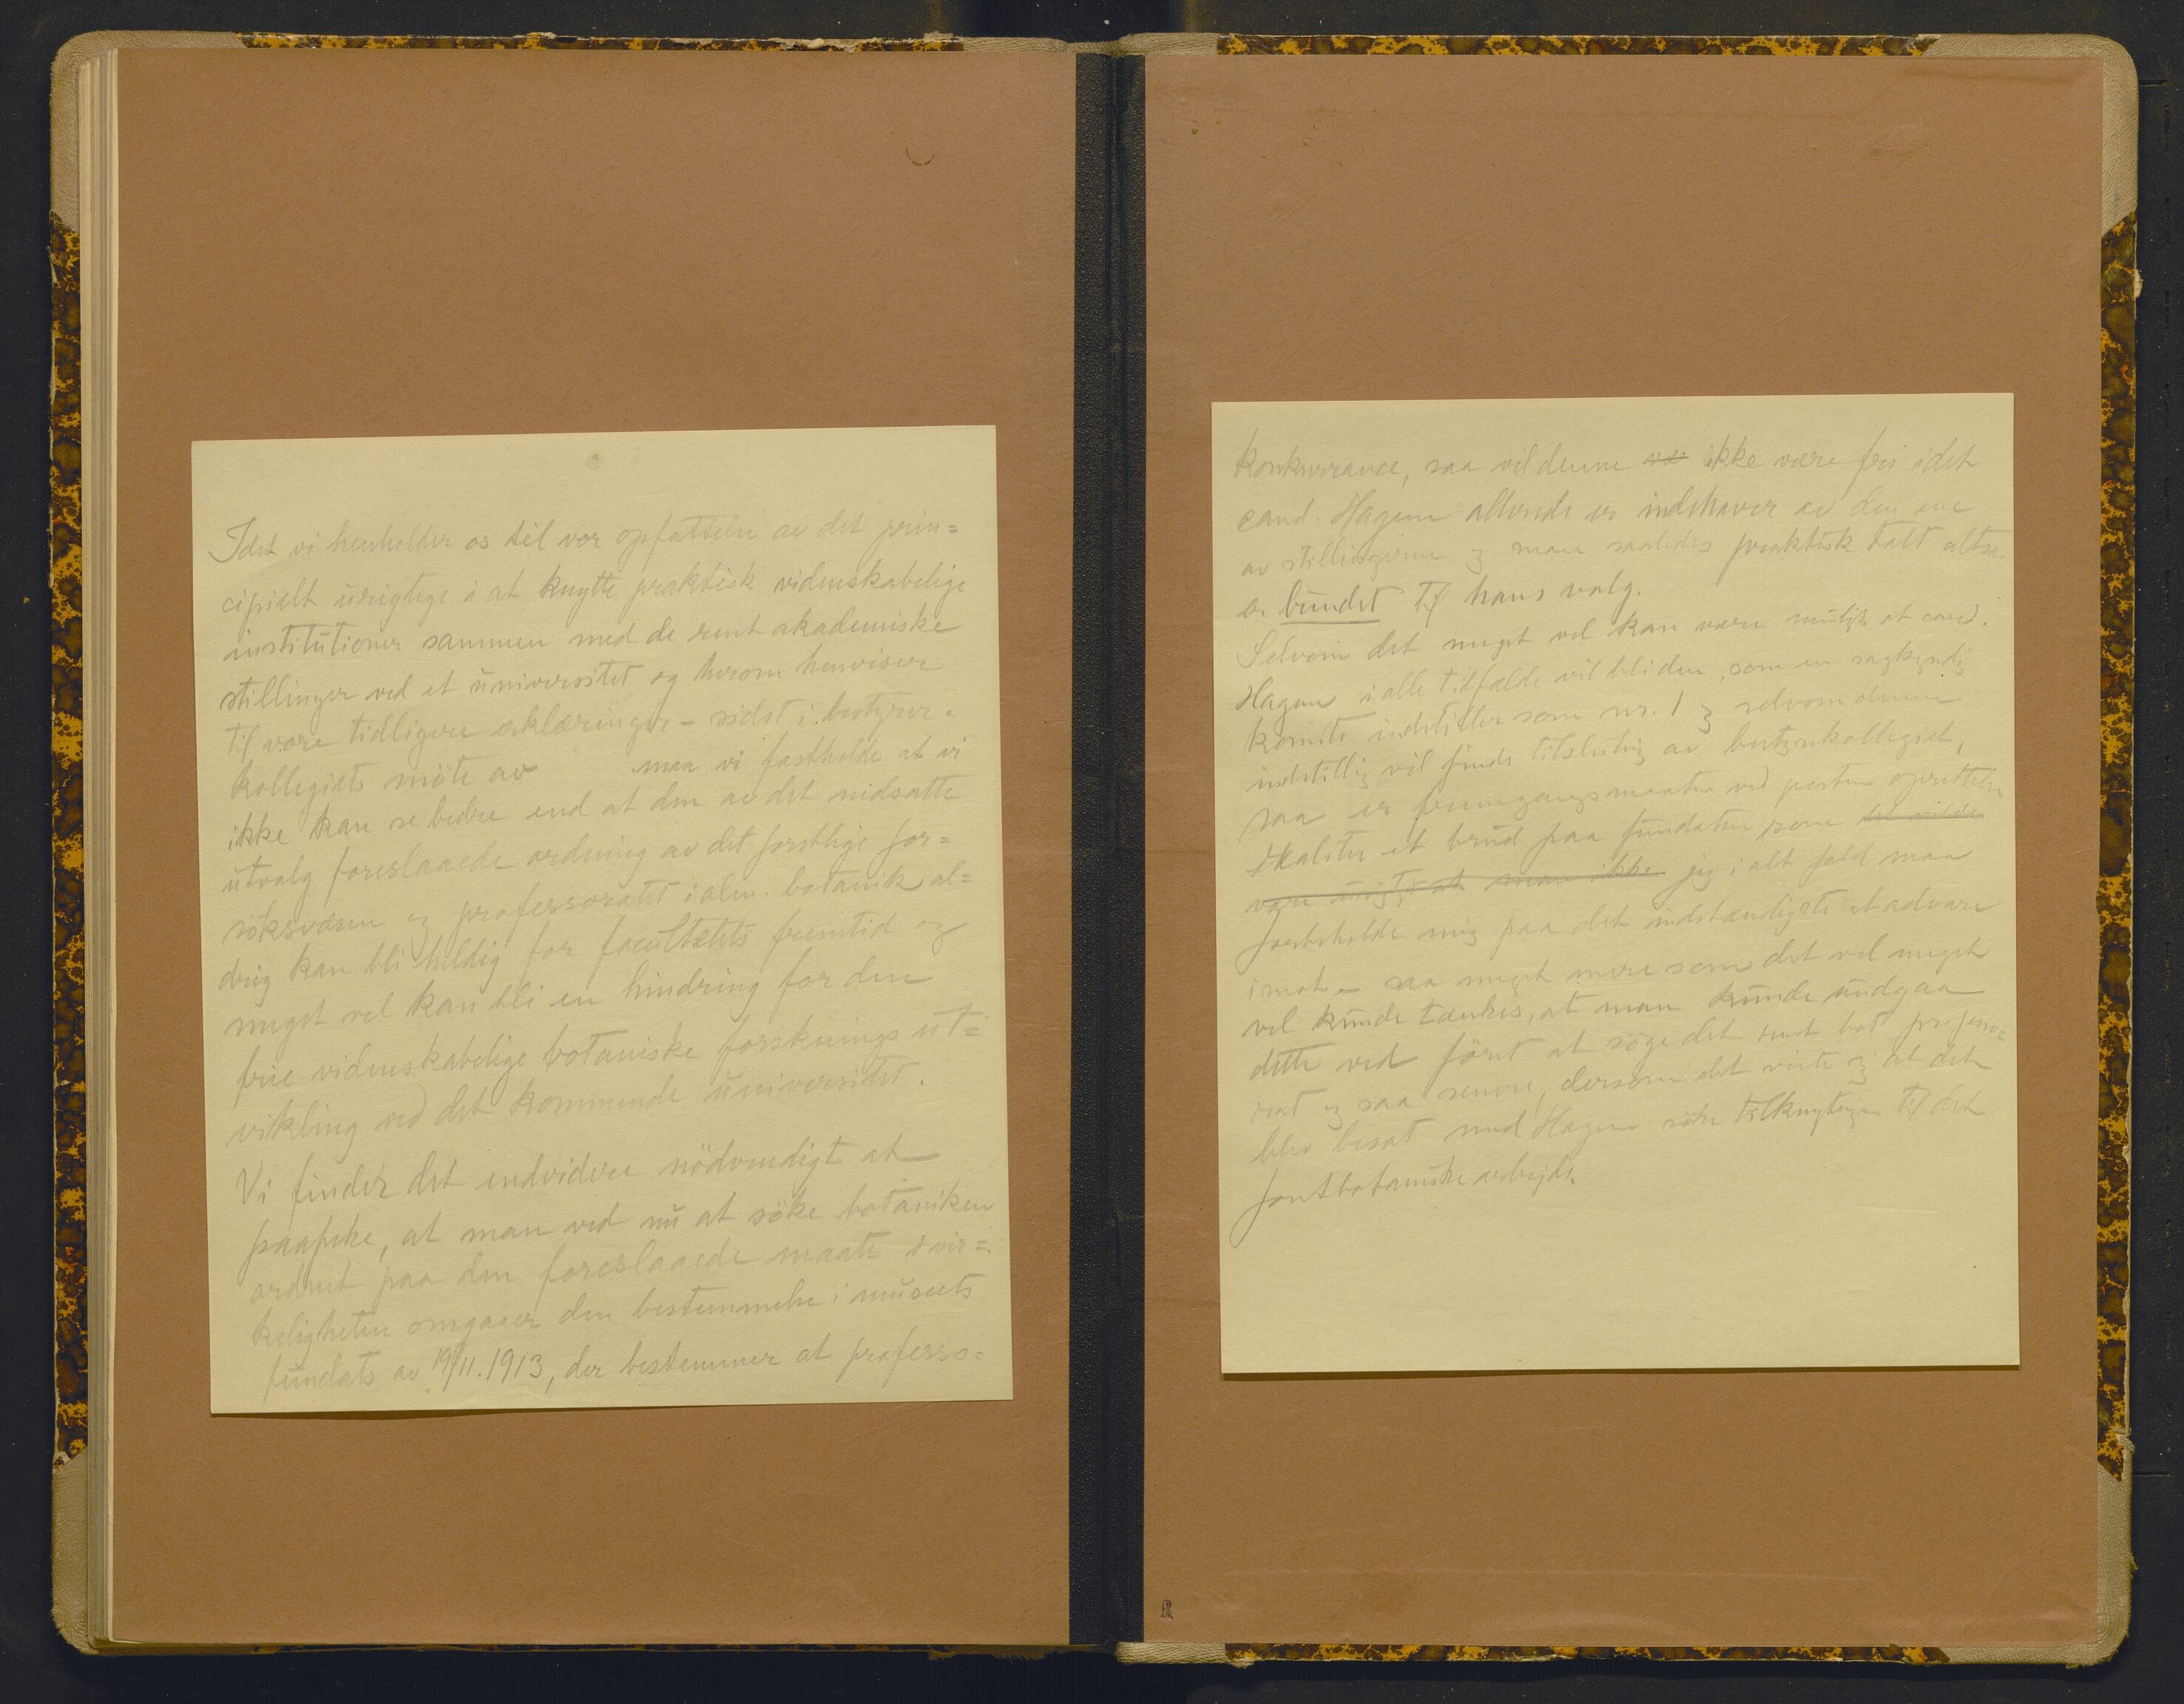 Idet vi henholder os til vor opfattelse av det prin=
cipielt urigtige i at knytte praktisk videnskabelige
institutioner sammen med de rent akademiske
stillinger ved et universitet og herom henviser
til vore tidligere erklæringer - sidst i bestyrer-
kollegiets möte av maa vi fastholde at vi
ikke kan se bedre end at den av det nedsatte
utvalg foreslaaede ordning av det forstlige for=
söksvæsen og professoratet i alm. botanik al=
drig kan bli heldig for facultetets fremtid og
meget vel kan bli en hindring for den
frie videnskabelige botaniske forsknings ut=
vikling ved det kommende universitet.
Vi finder det endvidere nödvendigt at
paapeke, at man ved nu at söke botaniken
ordnet paa den foreslaaede maate i vir=
keligheten omgaaer den bestemmelse i museets
fundats av 19/11.1913, der bestemmer at professo=
konkurrance, saa vil denne ikke være fri idet
cand. Hagem allerede er indehaver av den ene
av stillingerne og man saaledes praktisk talt altsaa
er bundet til hans valg.
Selvom det meget vel kan være muligt at cand.
Hagem i alle tilfælde vil bli den, som en sagkyndig
komite indstiller som nr. 1 og selvom denne
indstillig vil finde tilslutnig av bestyrerkollegiet,
saa er fremgangsmaaten ved posten oprettelse
et brud paa fundatsen som det vilde
være at man ikke jeg i alt fald maa
forbeholde mig paa det indstændigste at advare
imot - saa meget mere som det vel meget
vel kunde tænkes, at man kunde undgaa
dette ved först at söge det rent bot. professo=
rat og saa senere, dersom det viste sig at det
blev besat med Hagem söke tilknytnigen til det
forstbotaniske arbejde.